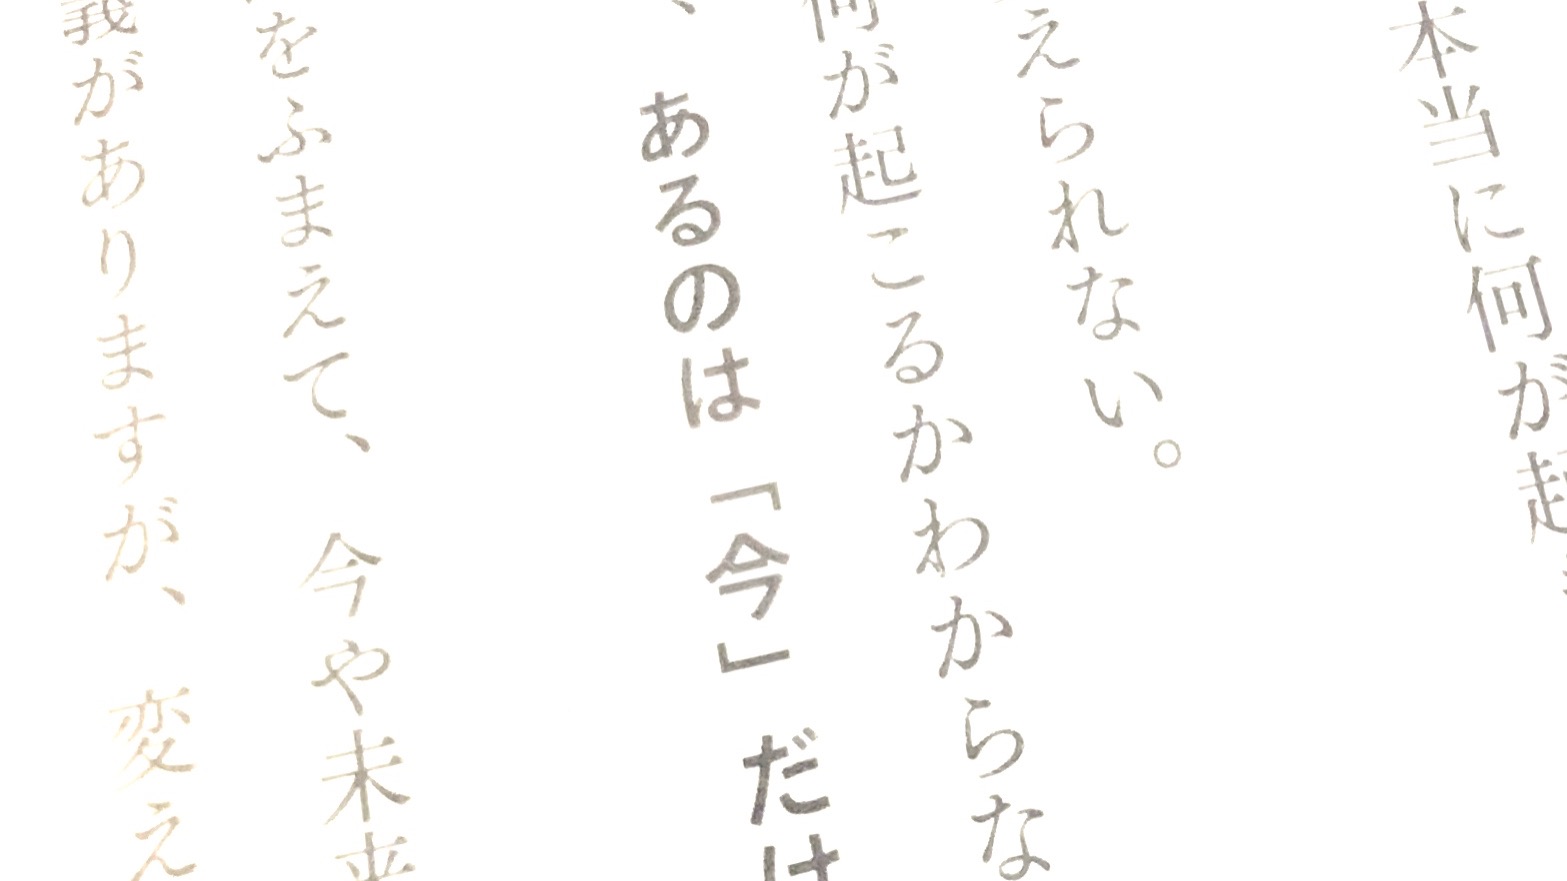 本当に何が起
えられない。
何が起こるかわからな
、あるのは「今」だけ
をふまえて、今や未来
義がありますが、変え